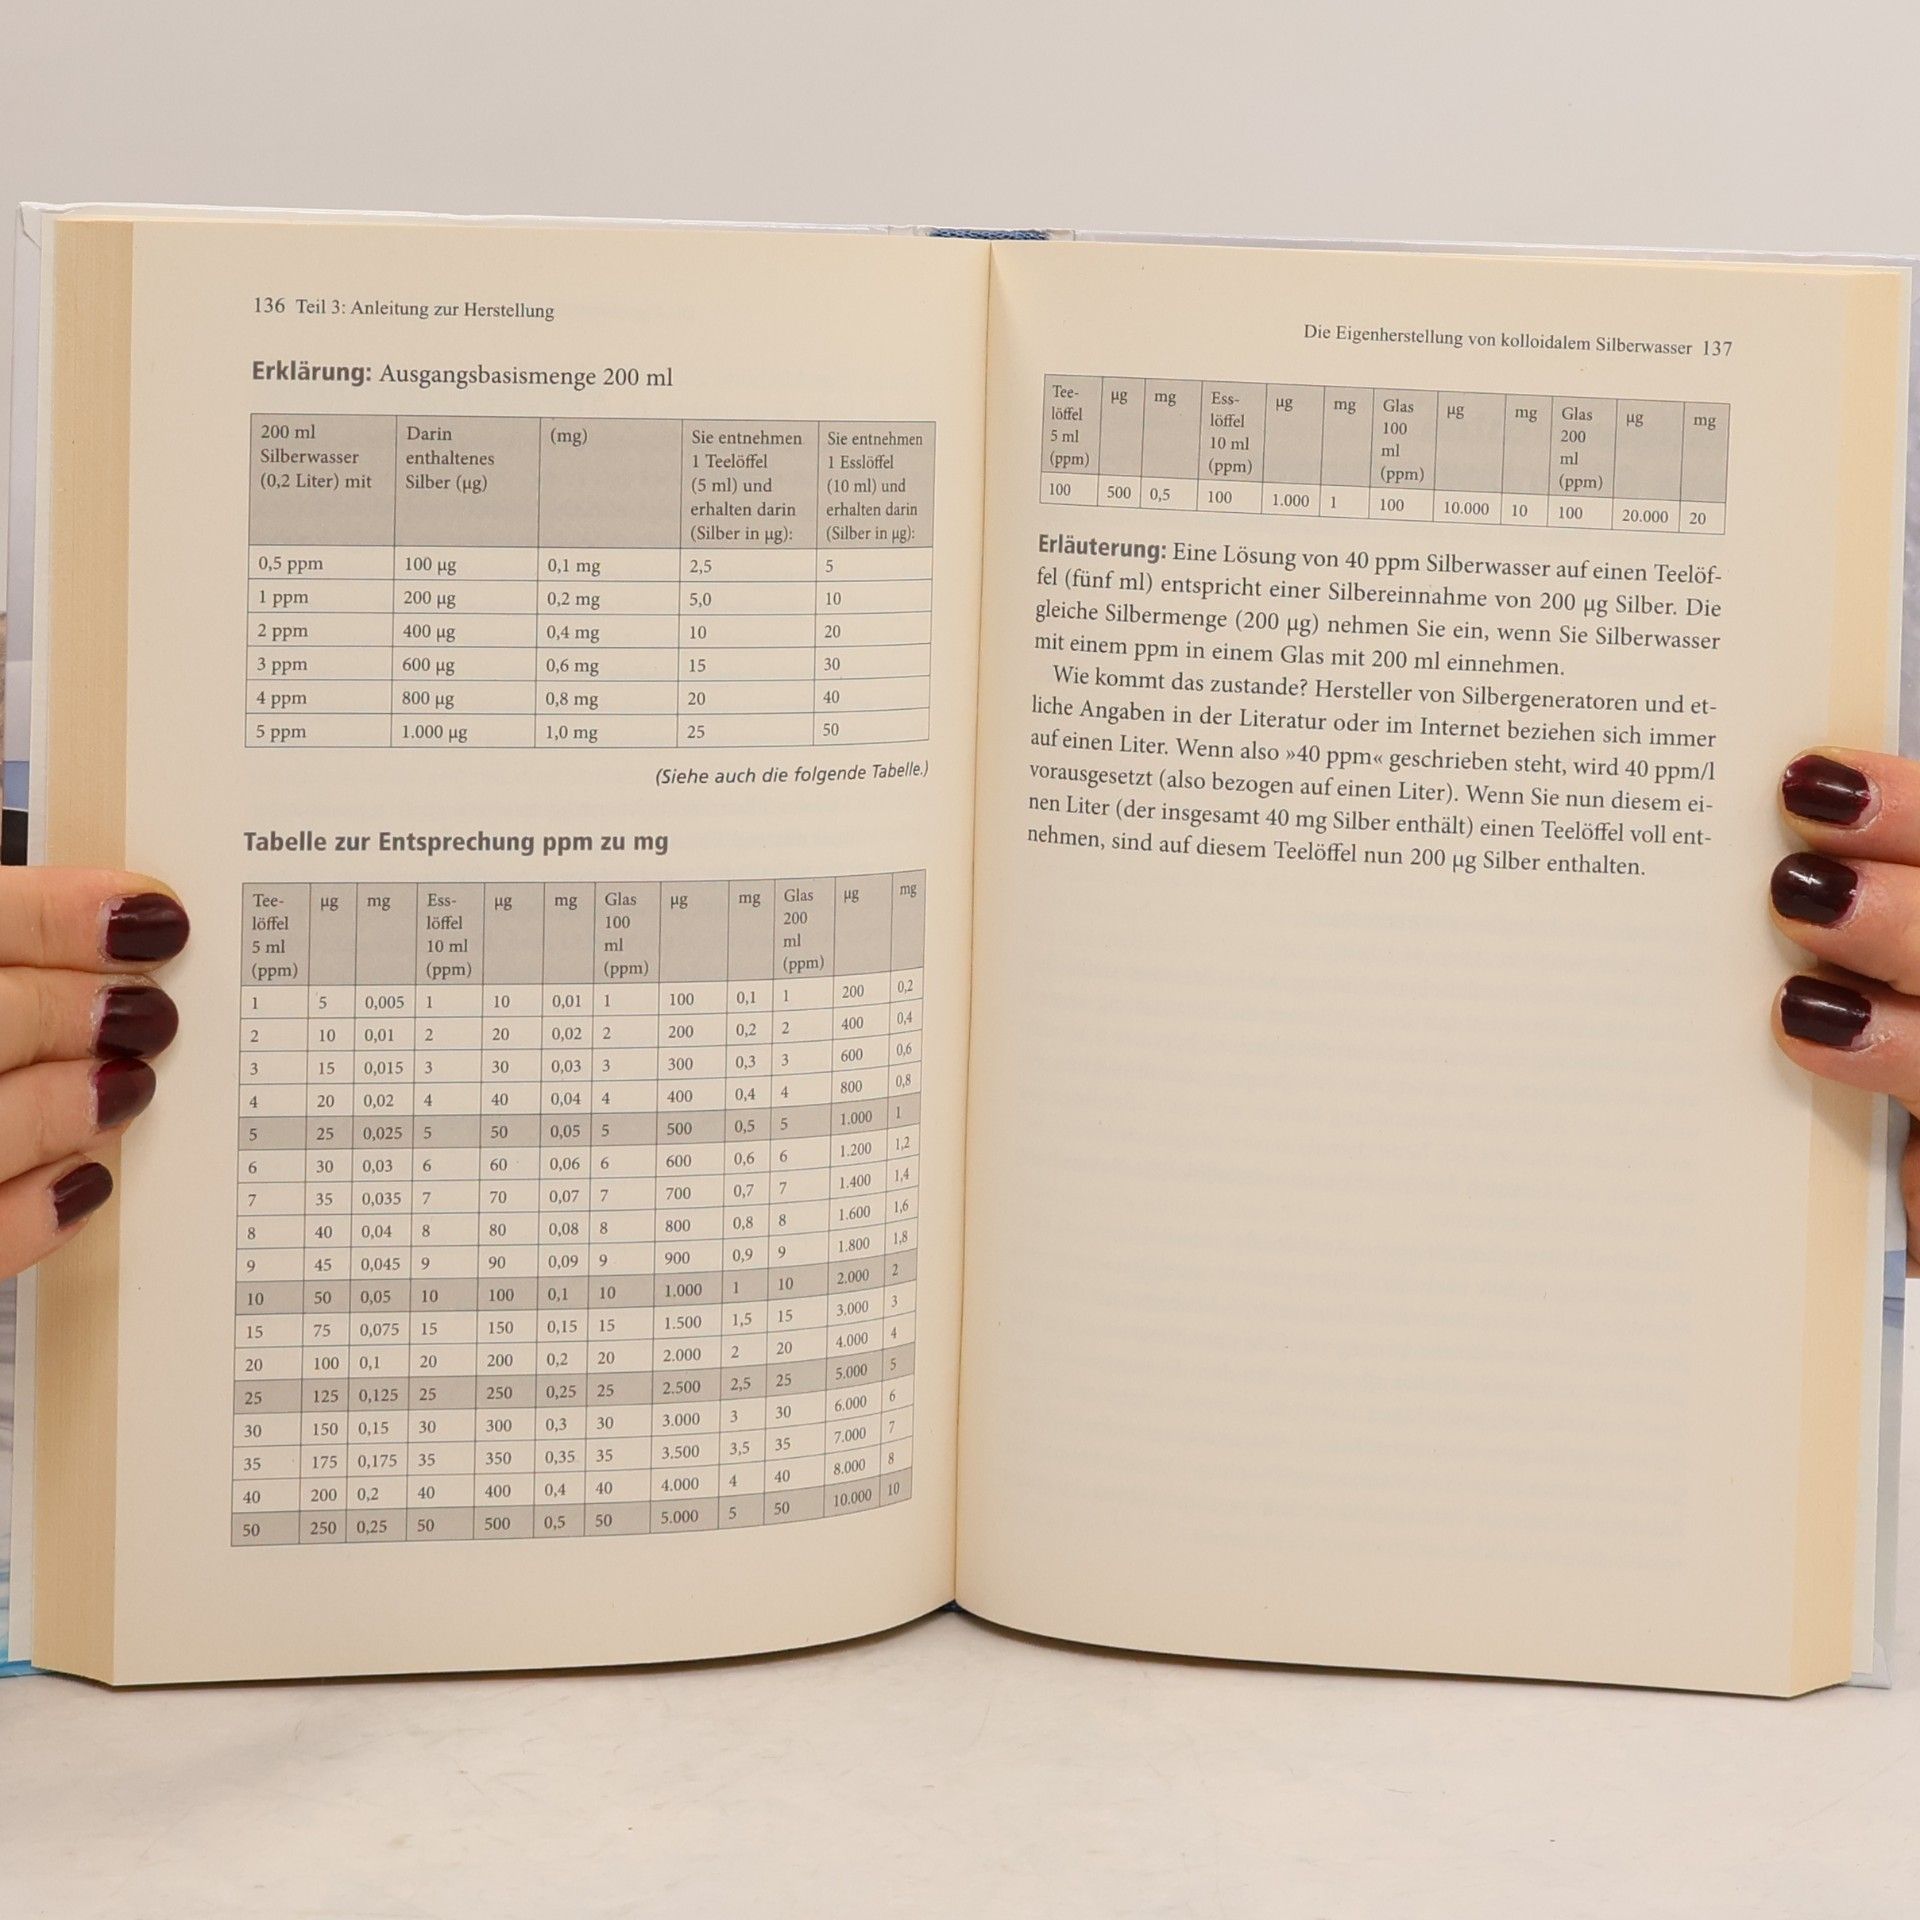 136 Teil 3: Anleitung zur Herstellung
Erklärung: Ausgangsbasismenge 200 ml
200 ml Silberwasser (0,2 Liter) mit | Darin enthaltenes Silber (µg) | (mg) | Sie entnehmen 1 Teelöffel (5 ml) und erhalten darin (Silber in µg): | Sie entnehmen 1 Esslöffel (10 ml) und erhalten darin (Silber in µg):
0,5 ppm | 100 µg | 0,1 mg | 2,5 | 5
1 ppm | 200 µg | 0,2 mg | 5,0 | 10
2 ppm | 400 µg | 0,4 mg | 10 | 20
3 ppm | 600 µg | 0,6 mg | 15 | 30
4 ppm | 800 µg | 0,8 mg | 20 | 40
5 ppm | 1.000 µg | 1,0 mg | 25 | 50
(Siehe auch die folgende Tabelle.)
Tabelle zur Entsprechung ppm zu mg
Tee-löffel 5 ml (ppm) | µg | mg | Ess-löffel 10 ml (ppm) | µg | mg | Glas 100 ml (ppm) | µg | mg | Glas 200 ml (ppm) | µg | mg
1 | 5 | 0,005 | 1 | 10 | 0,01 | 1 | 100 | 0,1 | 1 | 200 | 0,2
2 | 10 | 0,01 | 2 | 20 | 0,02 | 2 | 200 | 0,2 | 2 | 400 | 0,4
3 | 15 | 0,015 | 3 | 30 | 0,03 | 3 | 300 | 0,3 | 3 | 600 | 0,6
4 | 20 | 0,02 | 4 | 40 | 0,04 | 4 | 400 | 0,4 | 4 | 800 | 0,8
5 | 25 | 0,025 | 5 | 50 | 0,05 | 5 | 500 | 0,5 | 5 | 1.000 | 1
6 | 30 | 0,03 | 6 | 60 | 0,06 | 6 | 600 | 0,6 | 6 | 1.200 | 1,2
7 | 35 | 0,035 | 7 | 70 | 0,07 | 7 | 700 | 0,7 | 7 | 1.400 | 1,4
8 | 40 | 0,04 | 8 | 80 | 0,08 | 8 | 800 | 0,8 | 8 | 1.600 | 1,6
9 | 45 | 0,045 | 9 | 90 | 0,09 | 9 | 900 | 0,9 | 9 | 1.800 | 1,8
10 | 50 | 0,05 | 10 | 100 | 0,1 | 10 | 1.000 | 1 | 10 | 2.000 | 2
15 | 75 | 0,075 | 15 | 150 | 0,15 | 15 | 1.500 | 1,5 | 15 | 3.000 | 3
20 | 100 | 0,1 | 20 | 200 | 0,2 | 20 | 2.000 | 2 | 20 | 4.000 | 4
25 | 125 | 0,125 | 25 | 250 | 0,25 | 25 | 2.500 | 2,5 | 25 | 5.000 | 5
30 | 150 | 0,15 | 30 | 300 | 0,3 | 30 | 3.000 | 3 | 30 | 6.000 | 6
35 | 175 | 0,175 | 35 | 350 | 0,35 | 35 | 3.500 | 3,5 | 35 | 7.000 | 7
40 | 200 | 0,2 | 40 | 400 | 0,4 | 40 | 4.000 | 4 | 40 | 8.000 | 8
50 | 250 | 0,25 | 50 | 500 | 0,5 | 50 | 5.000 | 5 | 50 | 10.000 | 10
Die Eigenherstellung von kolloidalem Silberwasser 137
Tee-löffel 5 ml (ppm) | µg | mg | Ess-löffel 10 ml (ppm) | µg | mg | Glas 100 ml (ppm) | µg | mg | Glas 200 ml (ppm) | µg | mg
100 | 500 | 0,5 | 100 | 1.000 | 1 | 100 | 10.000 | 10 | 100 | 20.000 | 20
Erläuterung: Eine Lösung von 40 ppm Silberwasser auf einen Teelöf-
fel (fünf ml) entspricht einer Silbereinnahme von 200 µg Silber. Die
gleiche Silbermenge (200 µg) nehmen Sie ein, wenn Sie Silberwasser
mit einem ppm in einem Glas mit 200 ml einnehmen.
Wie kommt das zustande? Hersteller von Silbergeneratoren und et-
liche Angaben in der Literatur oder im Internet beziehen sich immer
auf einen Liter. Wenn also »40 ppm« geschrieben steht, wird 40 ppm/l
vorausgesetzt (also bezogen auf einen Liter). Wenn Sie nun diesem ei-
nen Liter (der insgesamt 40 mg Silber enthält) einen Teelöffel voll ent-
nehmen, sind auf diesem Teelöffel nun 200 µg Silber enthalten.